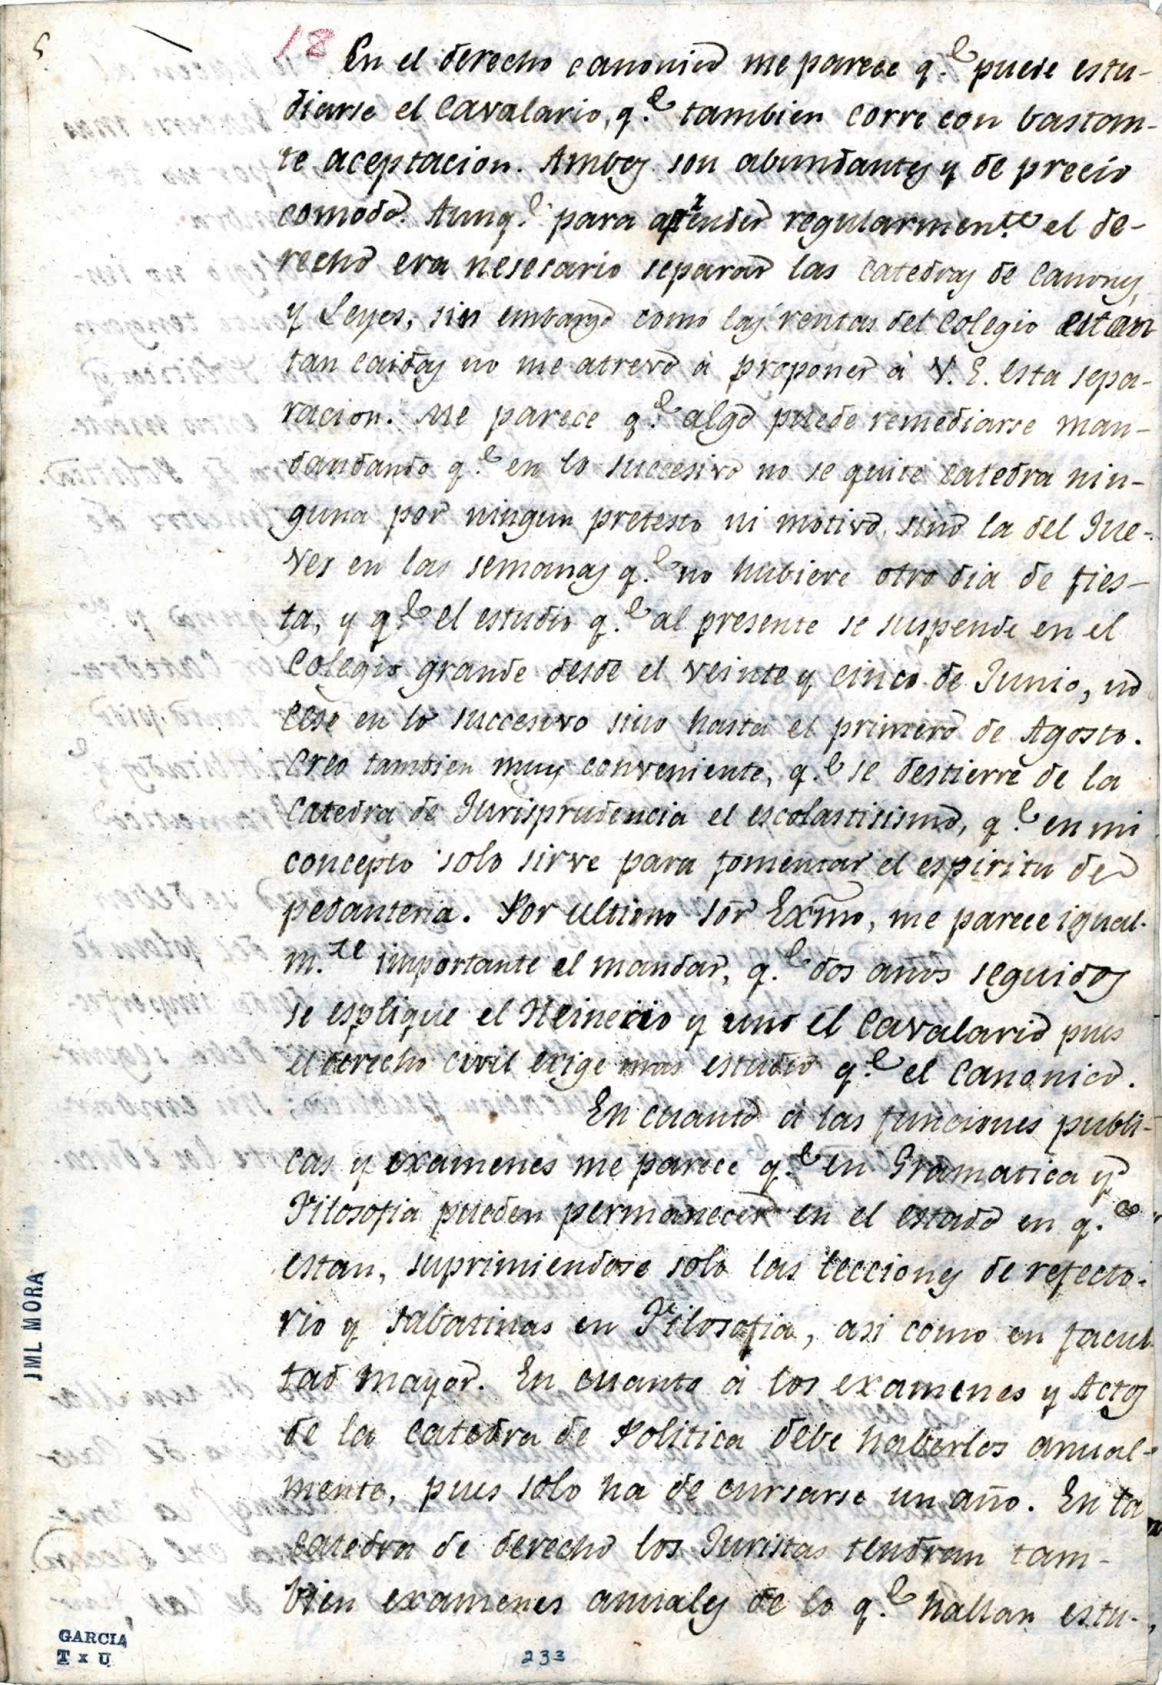 5
18 En el derecho canonico me parece q.e puede estu-
diarse el Cavalario, q.e tambien corre con bastan-
te aceptacion. Ambos son abundantes y de precio
comodo. Aunq.e para aprender regularmen.te el de-
recho era nesesario separar las catedras de Canones,
y Leyes, sin embargo como las rentas del Colegio estan
tan caidas no me atrevo à proponer à V. E. esta sepa-
racion. Me parece q.e algo puede remediarse man-
dandando q.e en lo succesivo no se quite catedra nin-
guna por ningun pretesto ni motivo, sino la del Jue-
ves en las semanas q.e no hubiere otro dia de fies-
ta, y q.e el estudio q.e al presente se suspende en el
Colegio grande desde el veinte y cinco de Junio, no
cese en lo succesivo sino hasta el primero de Agosto.
Creo tambien muy conveniente, q.e se destierre de la
Catedra de Jurisprudencia el escolastisismo, q.e en mi
concepto solo sirve para fomentar el espiritu de
pedanteria. Por ultimo Sor Exmo, me parece igual-
m.te importante el mandar, q.e dos años seguidos
se esplique el Heinecio y uno el Cavalario pues
el derecho civil exige mas estudio q.e el Canonico.
En cuanto à las funciones publi-
cas y examenes me parece q.e en Gramatica y
Filosofia pueden permanecer en el estado en q.e
estan, suprimiendose solo las lecciones de refecto-
rio y sabatinas en Filosofia, asi como en facul
tad mayor. En cuanto à los examenes y Actos
de la catedra de Politica debe haberlos anual-
mente, pues solo ha de cursarse un año. En la
catedra de derecho los Juristas tendran tam-
bien examenes anuales de lo q.e hallan estu-
JML MORA
GARCIA
T x U
233